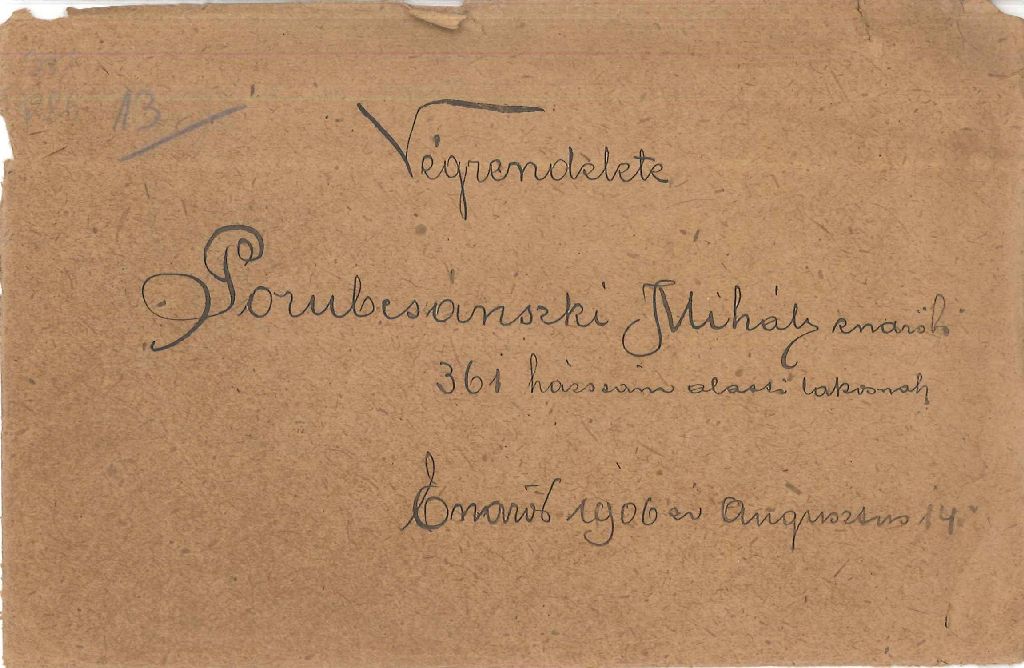 13
Végrendelete
Porubcsánszki Mihály
361 házszám alatti lakosnak
1906 év Augusztus 14